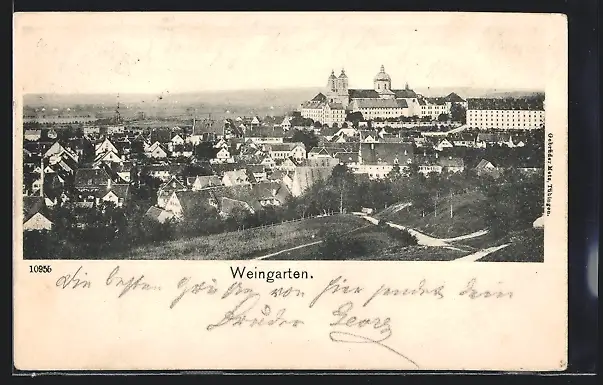 Weingarten.
10955
Gebrüder Metz, Tübingen.
Die besten Grüße von hier sendet dein
Bruder Georg